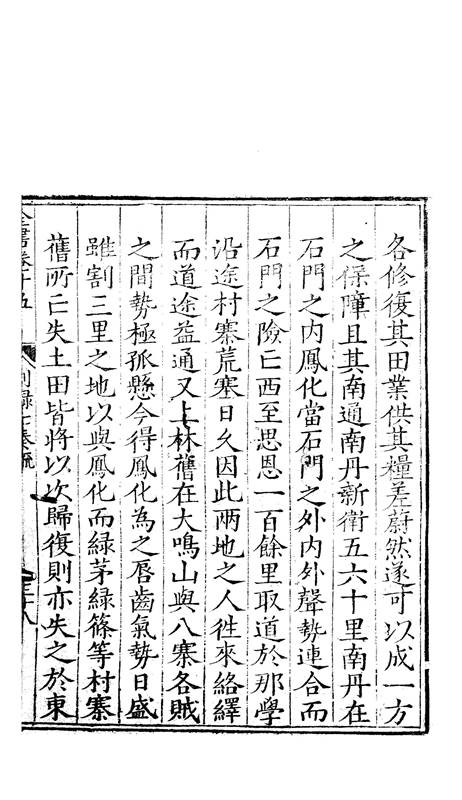 各修復其田業供其糧差蔚然遂可以成一方
之保障且其南通南丹新衛五六十里南丹在
石門之内鳳化當石門之外内外聲勢連合而
石門之險亡西至思恩一百餘里取道於那學
沿途村寨荒塞日久因此兩地之人徃來絡繹
而道途益通又上林舊在大鳴山與八寨各賊
之間勢極孤懸今得鳳化為之唇齒氣勢日盛
雖割三里之地以與鳳化而綠茅綠篠等村寨
舊所亡失土田皆將以次歸復則亦失之於東
全書卷十五
別録七奏疏
三十八